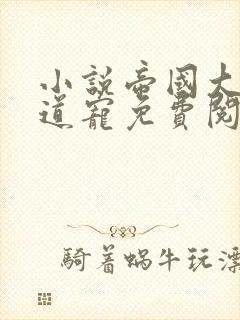 小說帝國大
道寵免費閱
騎着蝸牛玩漂